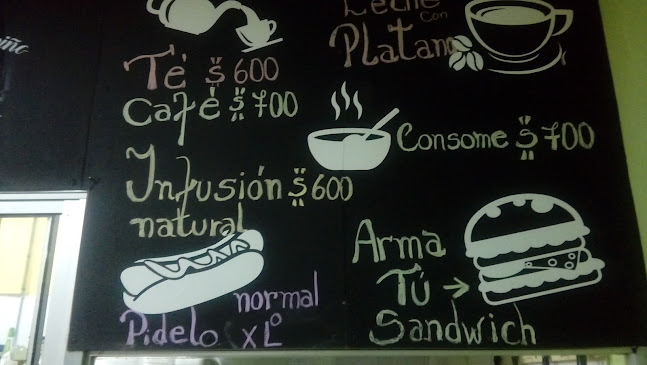 Leche con
Platano
Té $ 600
Café $ 700
Consome $ 700
Infusión $ 600
natural
Arma
Tú →
Sandwich
normal
Pidelo XL